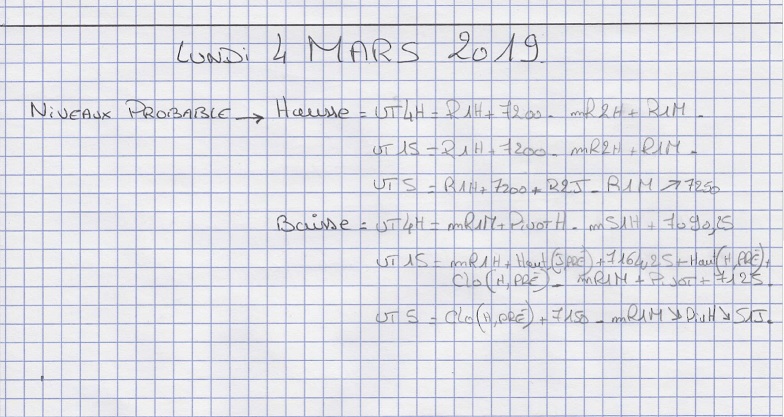 LUNDI 4 MARS 2019.
NIVEAUX PROBABLE → Hausse = UT 4H = R1H + 7200 - mR2H + R1M -
UT 15 = R1H + 7200 - mR2H + R1M -
UT 5 = R1H + 7200 + R2J - R1M ↗ 7250
Baisse = UT 4H = mR1M + Pivot H - mS1H + 7090,25
UT 15 = mR1H + Haut (J,PRÉ) + 7164,25 + Haut (H,PRÉ) +
Clo (H,PRÉ) - mR1M + Pivot + 7125.
UT 5 = Clo (H,PRÉ) + 7150 - mR1M ↘ Piv H ↘ S1J.